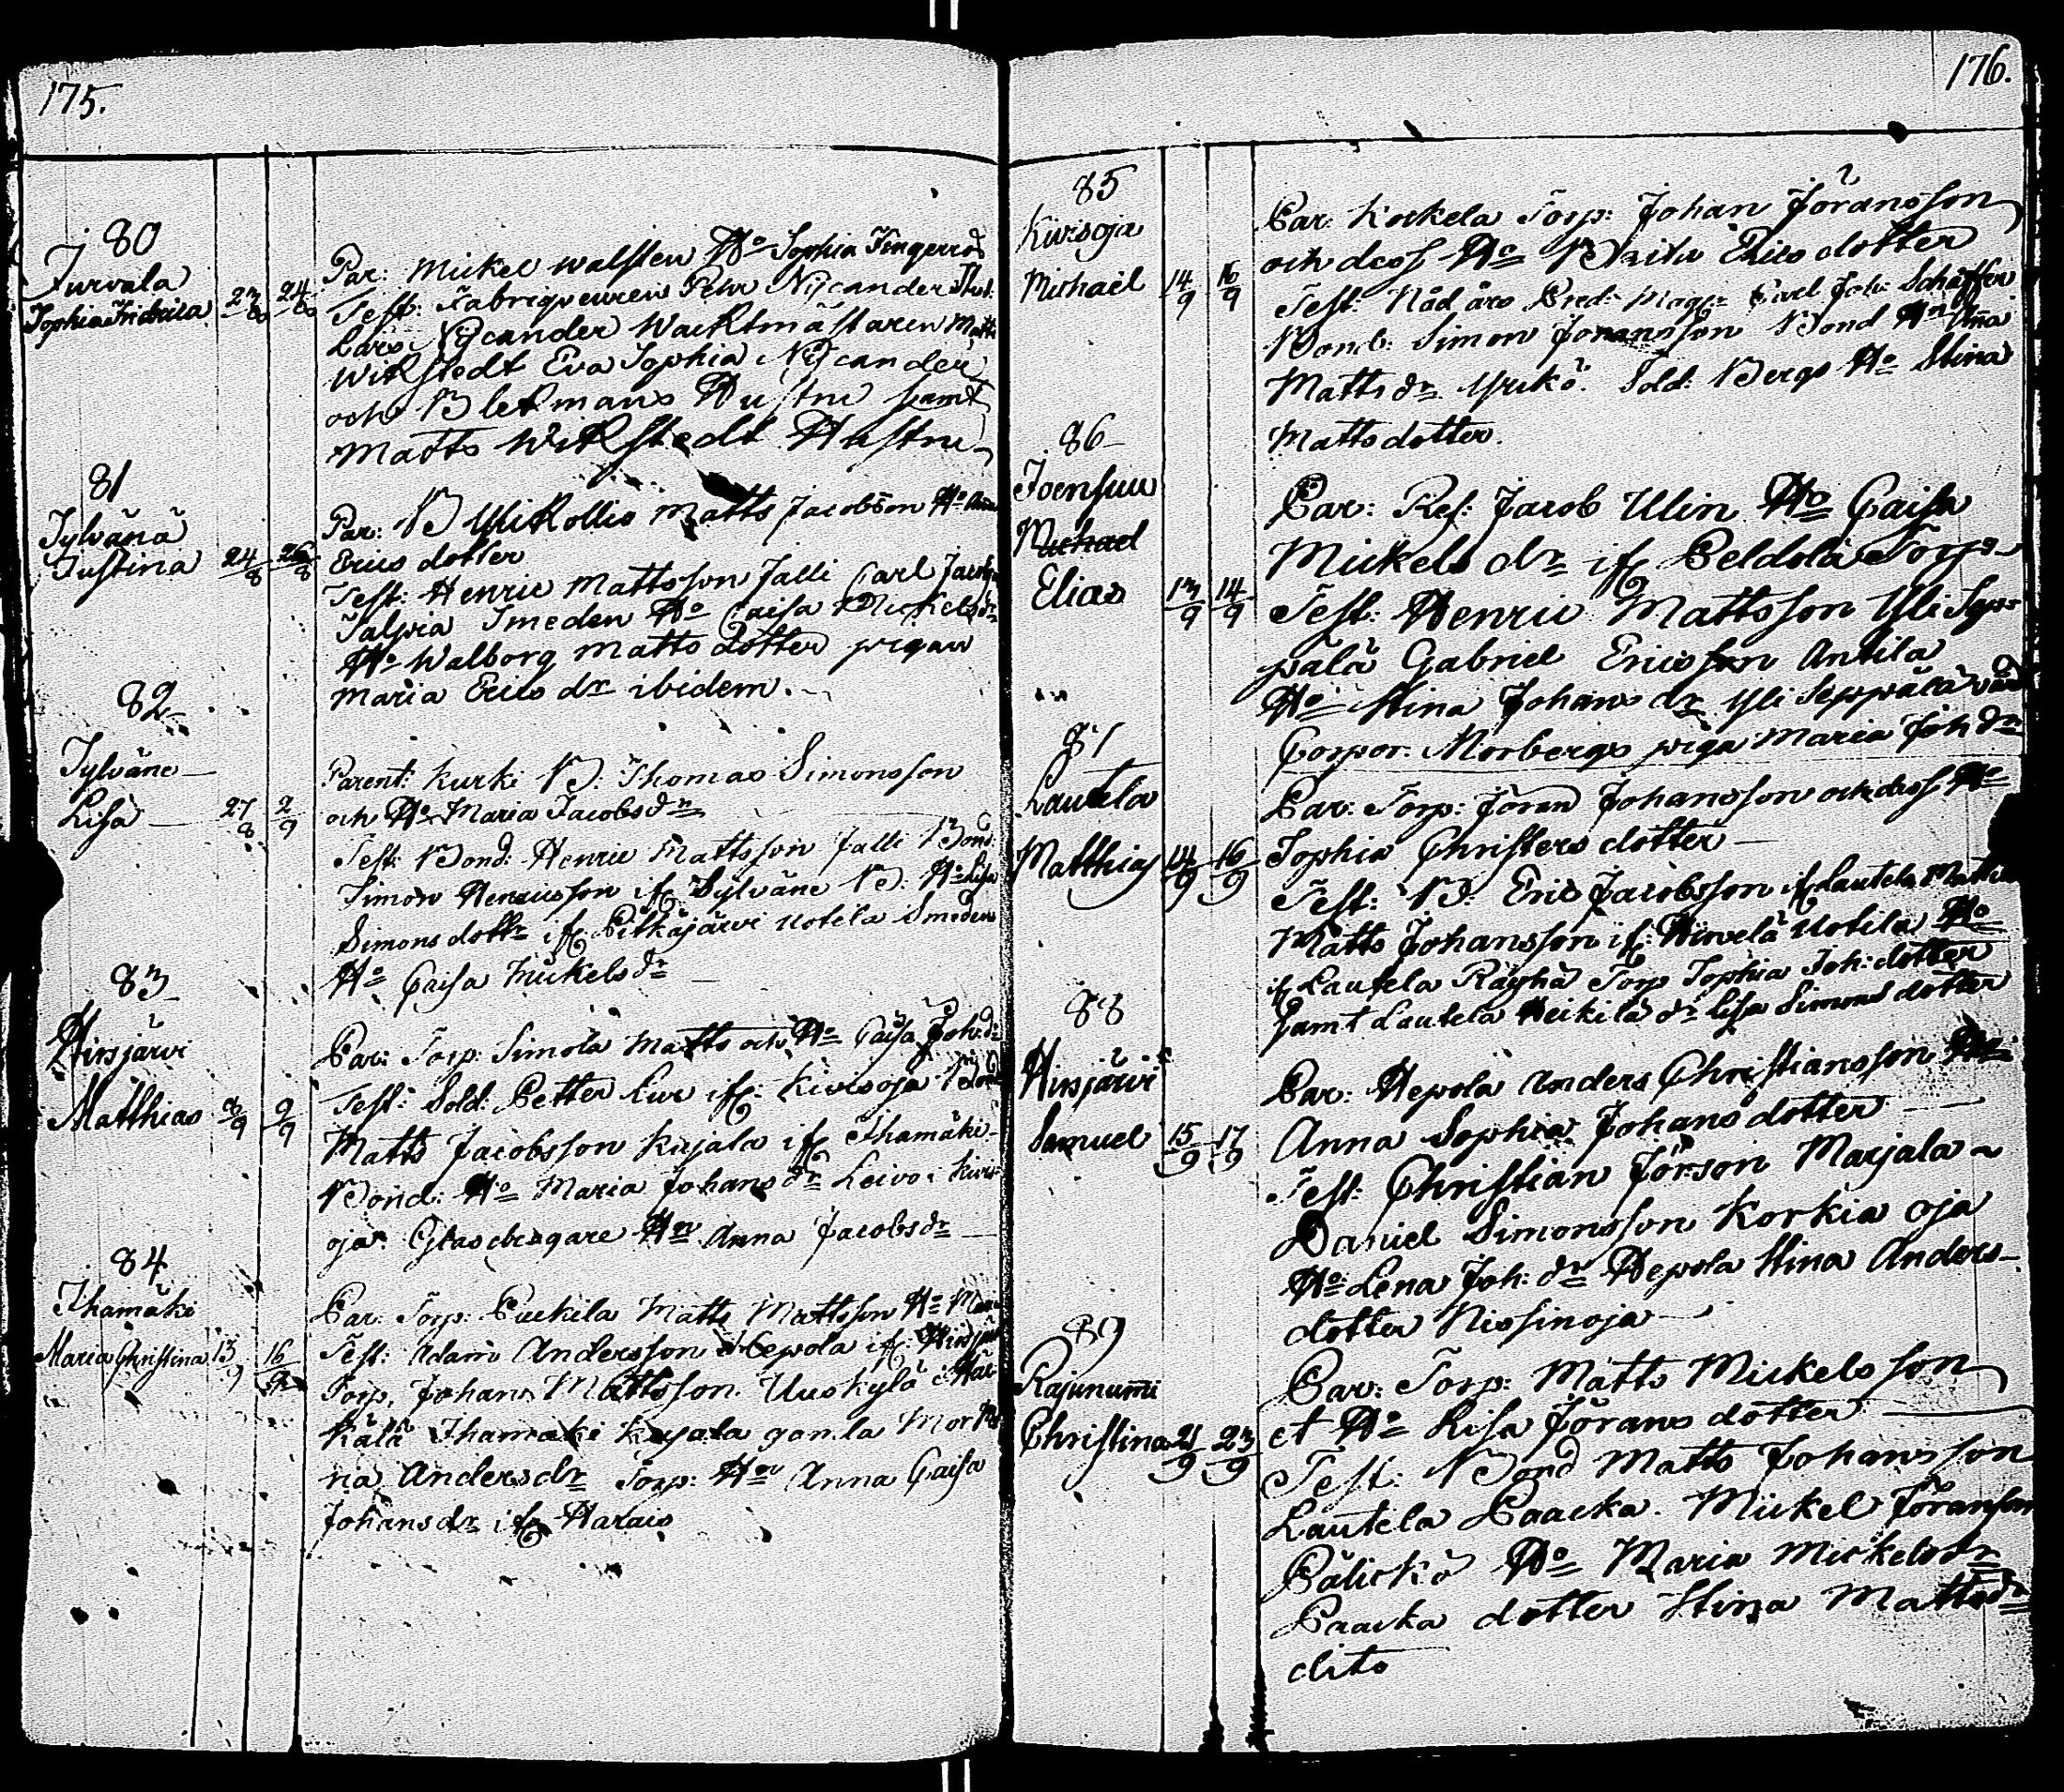 175.
80
Turvala
Sophia Fridrica 23/8 24/8
Par: Mickel Walsten Ho Sophia Fingerros
Test: Fabriqveuren Pehr Nycander Stud:
Lars Nycander Wacktmästaren Matts
Wikstedt Eva Sophia Nycander
och Blekmans Hustru samt
Matts Wikstedt Hustru
81
Sylvänä
Justina 24/8 26/8
Par: B Mickollis Matts Jacobsson Ho Anna
Erics dotter
Test: Henric Mattsson Jalli Carl Jacobss
Talpia Smeden Ho Caisa Mickelsdr
Ho Walborg Matts dotter pigan
Maria Erics dr ibidem.
82
Sylväne
Lisa 27/8 2/9
Parent: Kurki B: Thomas Simonsson
och Ho Maria Jacobsdr
Test: Bond: Henric Mattsson Jalli Bond:
Simon Henricsson ifr Sylväne B: Ho Lisa
Simons dottr ifr Pitkäjärvi Uotila Smedens
Ho Caisa Mickelsdr
83
Hirsjärvi
Matthias 8/9 9/9
Par: Torp: Simola Matts och Ho Caisa Johdr
Test: Sold: Petter Kur ifr: Kivisoja Bond
Matts Jacobsson Kujala ifr Ihamäki
Bond: Ho Maria Johans dr Leivo i Kivis
oja Glasdragare Hu Anna Jacobsdr
84
Ihamäki
Maria Christina 15/9 16/9
Par: Torp: Puckila Matts Mattsson Ho Maria
Test: Adam Andersson Hepola ifr Hirsjärvi
Torp, Johan Mattsson Uuskylä i Här
kälä Ihamäki Kujala gamla Mor
na Andersdr Torp: Hu Anna Caisa
Johansdr ifr Harais
176.
85
Kivisoja
Michaël 14/9 16/9
Par: Kockela Torp: Johan Göransson
och dess Ho Brita Erics dotter
Test: Nåd års Pred: Mag: Carl Joh: Schäffer
Bond: Simon Johansson Bond Hu Anna
Matts dr Yrikö. Sold: Bergs Ho Stina
Matts dotter.
86
Joensuu
Michael
Elias 13/9 14/9
Par: Ref: Jacob Ulin Ho Caisa
Mickels dr ifr Peldola Torp
Test: Henric Mattsson Yli Sep-
pälä Gabriel Ericsson Antila
Ho Stina Johans dr Yli Seppälä samt
Corpor: Morbergs piga Maria Joh dr
87
Lautela
Matthias 14/9 16/9
Par: Torp: Göran Johansson och dess Ho
Sophia Christers dotter
Test: B: Eric Jacobsson ifr Lautela Mattila
Matts Johansson ifr: Hirvelä Uotila Ho
ifr Lautela Räyhä Torp Sophia Joh: dotter
samt Lautela Heikilä dr Lisa Simons dotter
88
Hirsjärvi
Samuel 15/9 17/9
Par: Hepola Anders Christiansson Ho
Anna Sophia Johans dotter
Test: Christian Görson Marjala
Daniel Simonsson Korkia oja
Ho Lena Joh: dr Hepola Stina Anders-
dotter Nissinoja
89
Rajunummi
Christina 21/9 23/9
Par: Torp: Matts Mickelsson
et Ho Lisa Görans dotter
Test: Bond Matts Johansson
Lautela Paacka. Mickel Göransson
Pälickö Ho Maria Mickelsdr
Paacka dotter Stina Mattsdr
dito